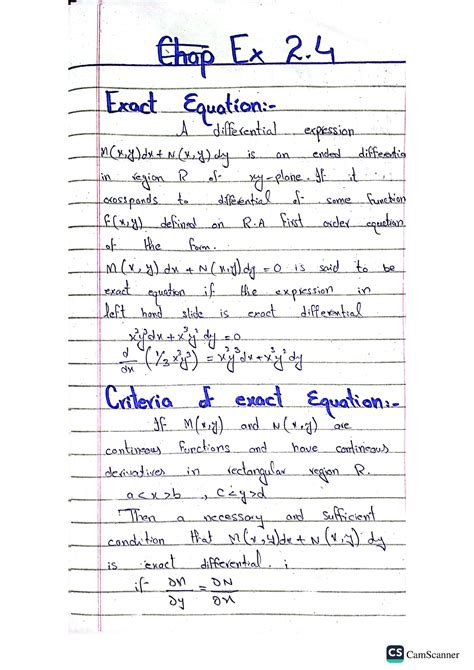 Chap Ex 2.4
Exact Equation:-
A differential expression
M(x,y)dx + N(x,y)dy is an ended differentia
in region R of xy-plane. If it
crossponds to diffential of some function
f(x,y) defined on R. A first order equation
of the form.
M(x,y)dx + N(x,y)dy = 0 is said to be
exact equation if the expression in
left hand slide is exact differential
x²y³dx + x³y²dy = 0
d/dx (1/3 x³y³) = x²y³dx + x³y²dy
Criteria of exact Equation:-
If M(x,y) and N(x,y) are
contineous functions and have contineous
derivatives in rectangular region R.
a<x>b , c<y>d
Then a necessory and sufficient
condition that M(x,y)dx + N(x,y)dy
is exact differential. i
if ∂M/∂y = ∂N/∂x
CS CamScanner